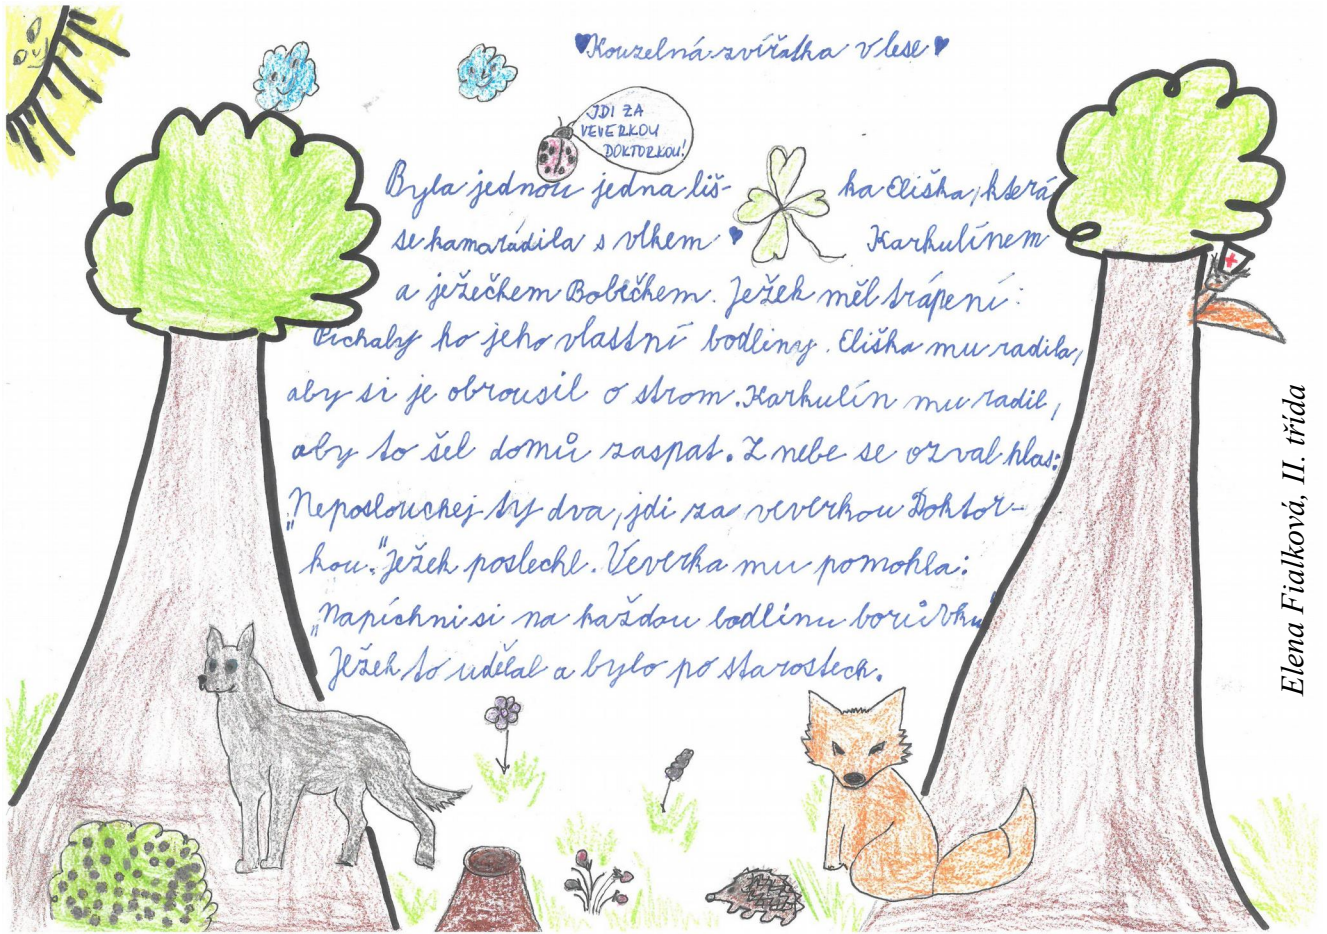 ♥Kouzelná zvířátka v lese♥
JDI ZA
VEVERKOU
DOKTORKOU!
Byla jednou jedna liš- ka Eliška, která
se kamarádila s vlkem Karkulínem
a ježečkem Bobečkem. Ježek měl trápení:
Píchaly ho jeho vlastní bodliny. Eliška mu radila,
aby si je obrousil o strom. Karkulín mu radil,
aby to šel domů zaspat. Z nebe se ozval hlas:
„Neposlouchej ty dva, jdi za veverkou Doktor-
kou." Ježek poslechl. Veverka mu pomohla:
„Napíchni si na každou bodlinu borůvku"
Ježek to udělal a bylo po starostech.
Elena Fialková, II. třída